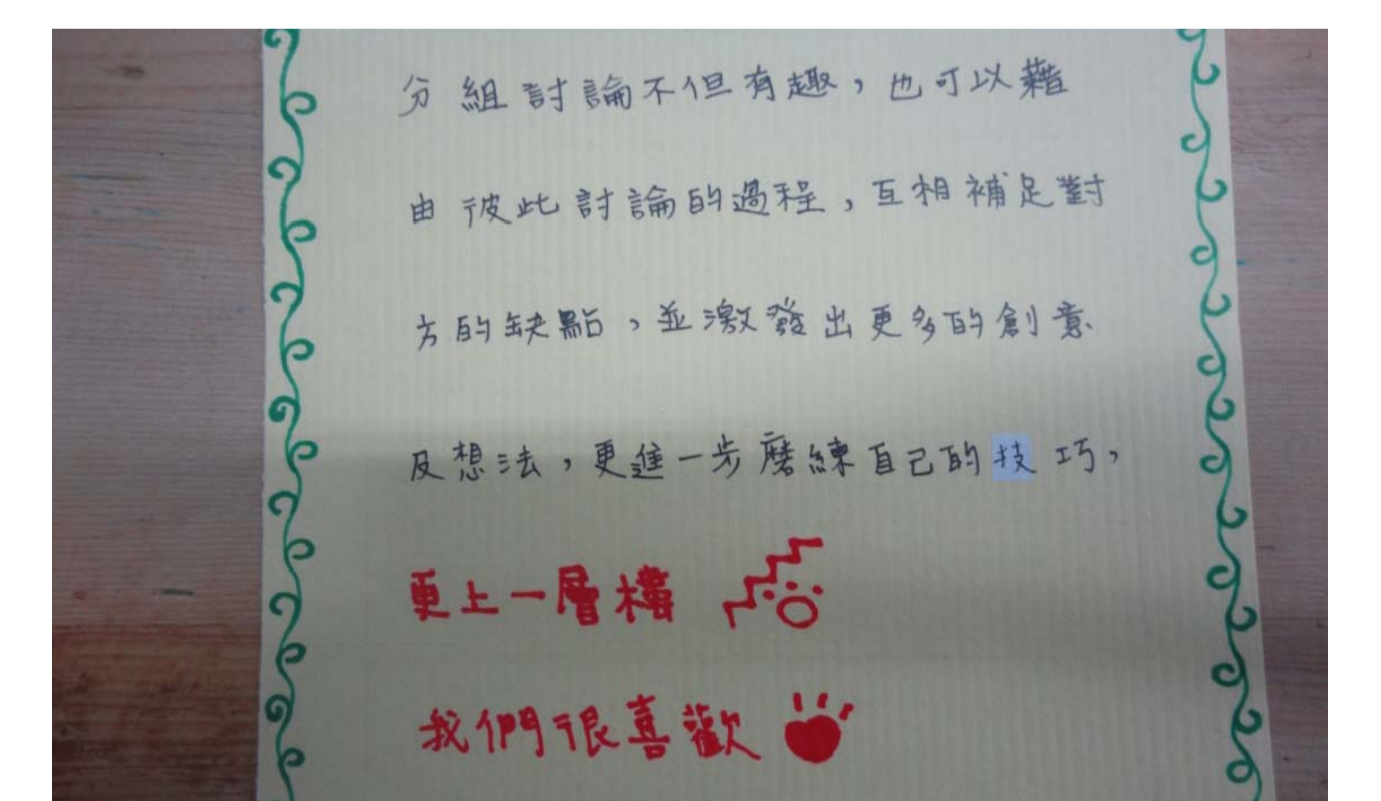 分組討論不但有趣，也可以藉
由彼此討論的過程，互相補足對
方的缺點，並激發出更多的創意
及想法，更進一步磨練自己的技巧，
更上一層樓
我們很喜歡